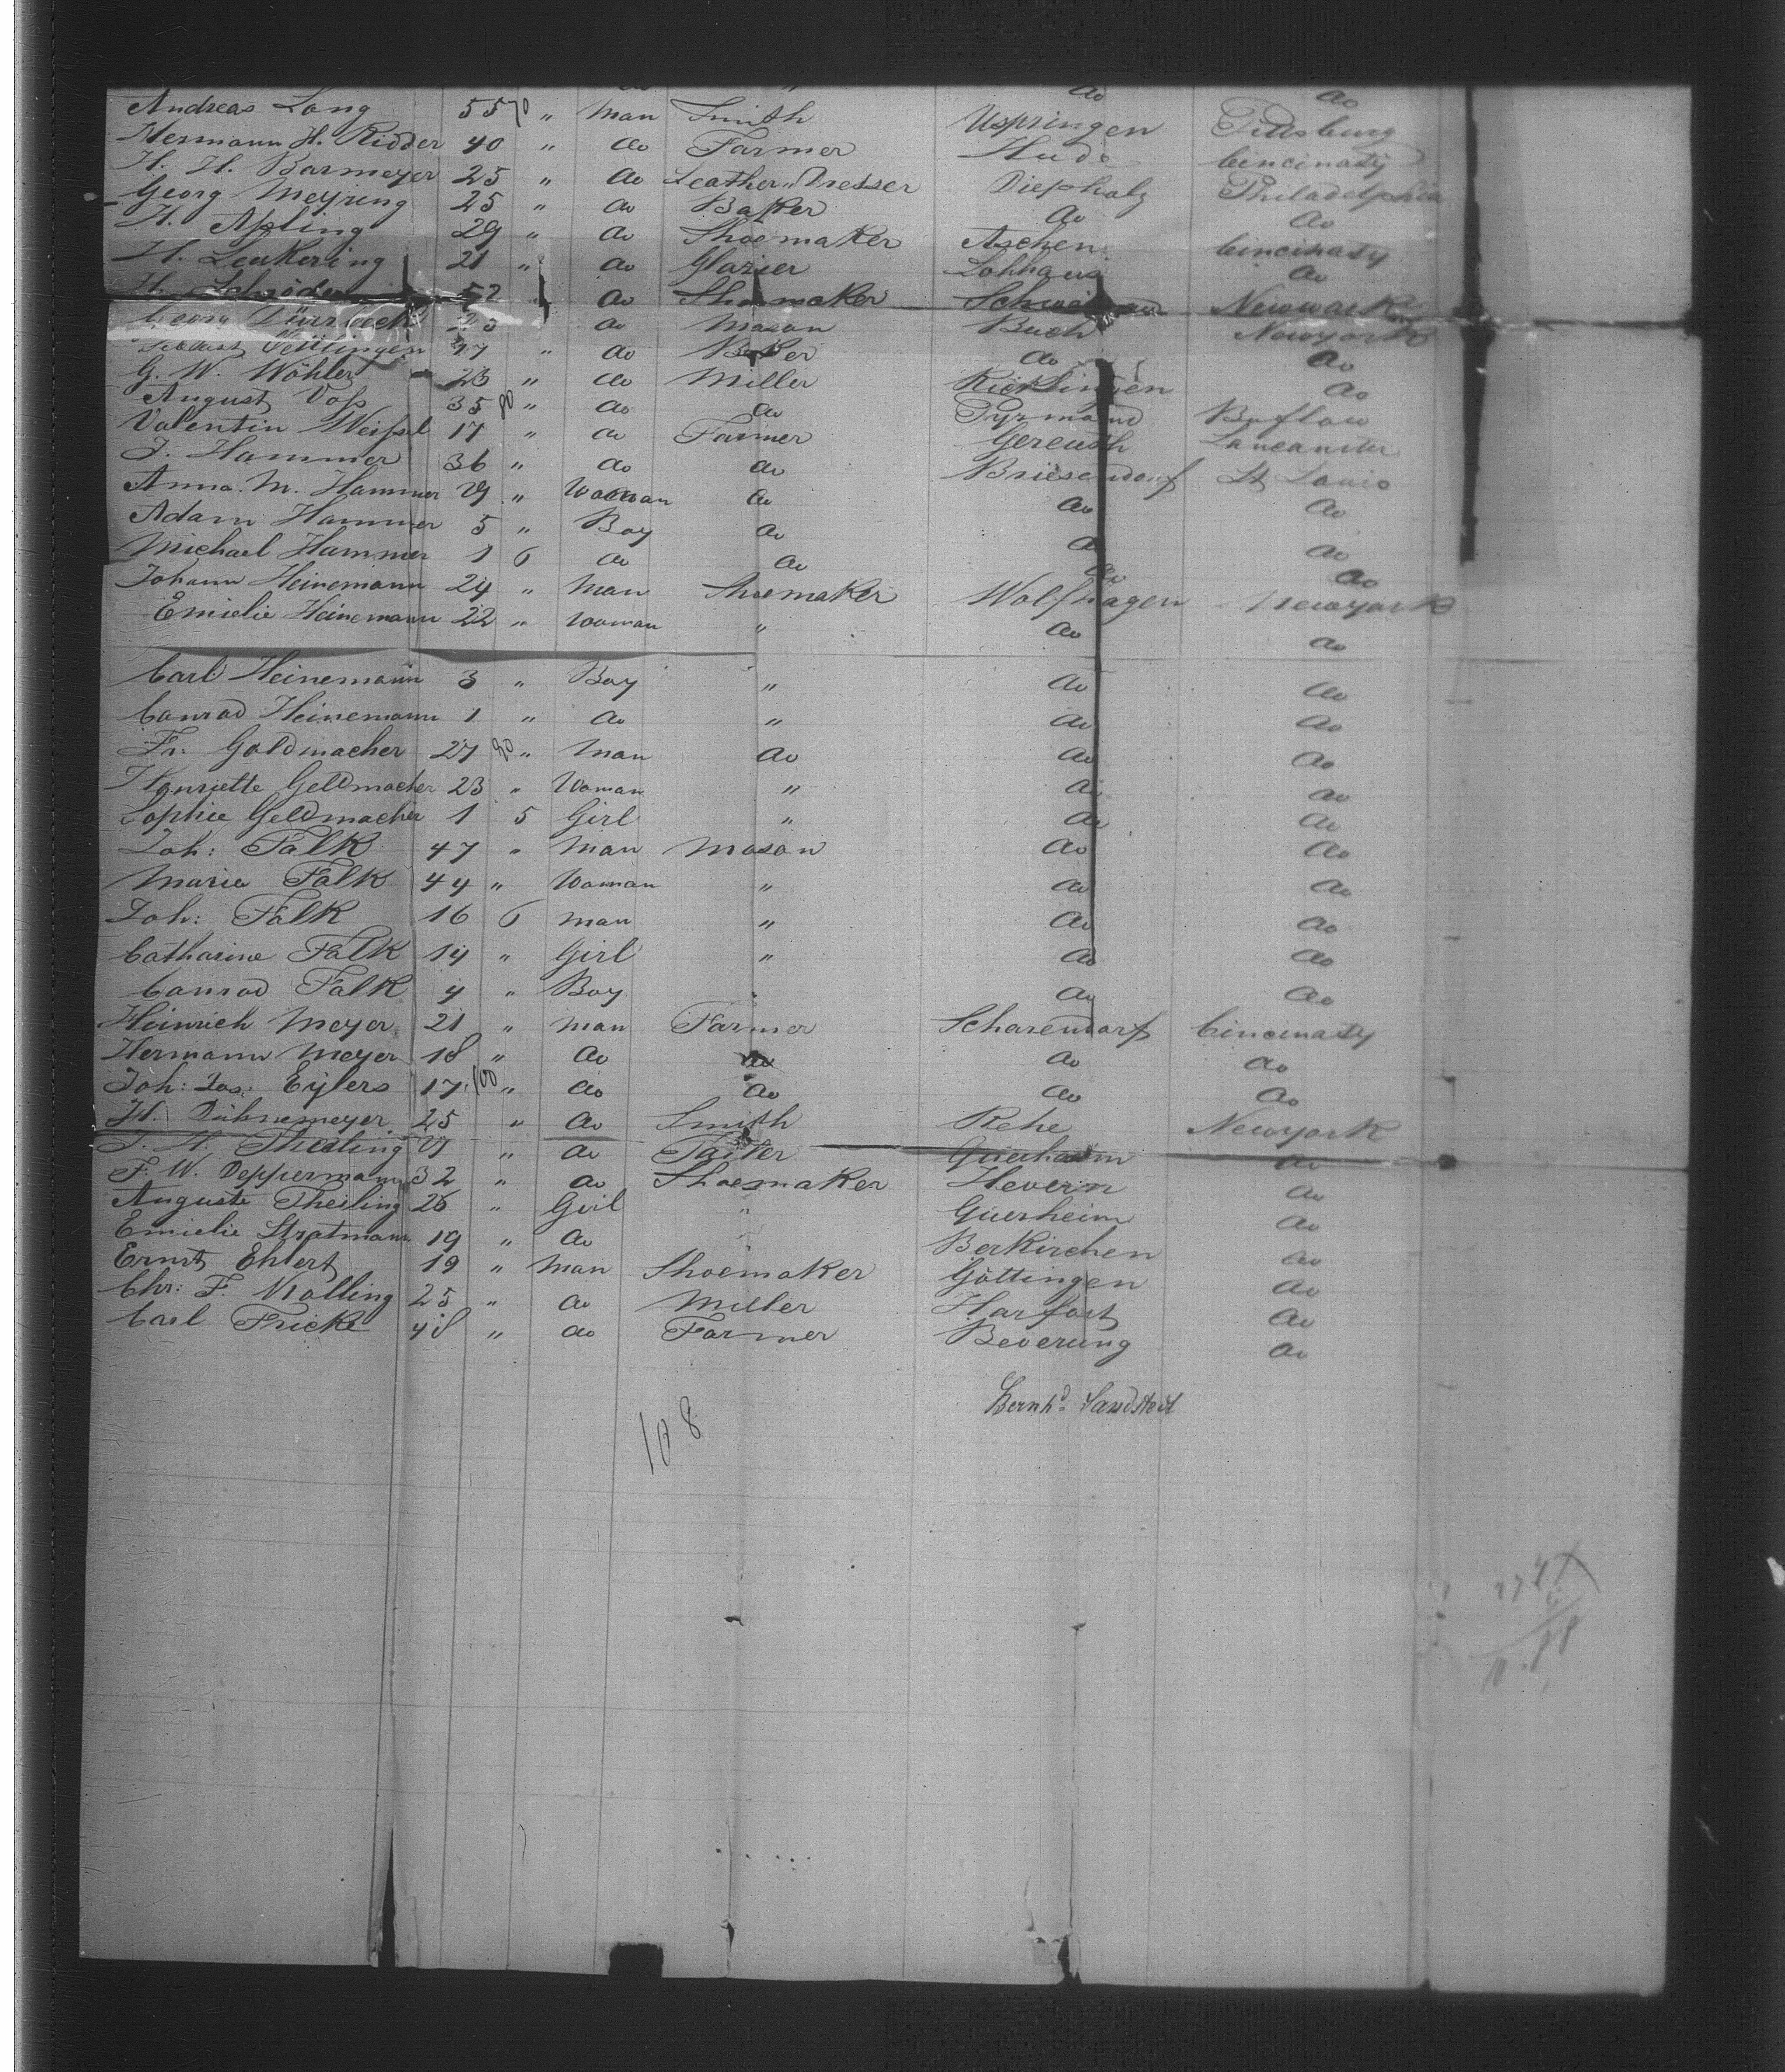 do " do do
Andreas Lang 55 70 " Man Smith Uspringen Pittsburg
Hermann H. Ridder 40 " do Farmer Hude Cincinaty
H. H. Barmeyer 25 " do Leather " Dresser Diepholz Philadelphia
Georg Meyring 25 " do Baker do do
H. Apling 29 " do Shoemaker Aschen Cincinaty
H. Leukering 21 " do Glazier Lohhaus do
H. Schröder 52 " do Shoemaker Newwark
Georg 23 do Mason Buch Newyork
47 " do Baker do do
G. W. Wöhler 23 " do Miller Ricklingen do
August Voß 35 80 " do do Pyrmond Buflow
Valentin Weissel 17 " do Farmer Gereuth Lancaster
J. Hammer 36 " do do Briesendorf St Louis
Anna. M. Hammer 29 " Wooman do do do
Adam Hammer 5 " Boy do do do
Michael Hammer 1 6 do do do do
Johann Heinemann 24 " Man Shoemaker Wolfhagen Newyork
Emielie Heinemann 22 " Wooman " do do
Carl Heinemann 3 " Boy " do do
Conrad Heinemann 1 " do " do do
Fr: Goldmacher 27 90 " Man do do do
Henriette Geldmacher 23 " Woman " do do
Sophie Geldmacher 1 5 Girl " do do
Joh: Falk 47 " Man Mason do do
Maria Falk 44 " Woman " do do
Joh: Falk 16 6 Man " do do
Catharine Falk 14 " Girl " do do
Conrad Falk 4 " Boy " do do
Heinrich Meyer 21 " Man Farmer Scharendorf Cincinaty
Hermann Meyer 18 " do do do do
Joh: Jos: Eylers 17 100 " do do do do
H. Dühnemeyer 25 " do Smith Rehe Newyork
J. H. Theiling 29 " do Tailer Güerheim do
F. W. Deppermann 32 " do Shoemaker Hevern do
Auguste Theiling 26 " Girl " Güerheim do
Emielie Stratmann 19 " do Berkirchen do
Ernst Ehlert 19 " Man Shoemaker Göttingen do
Chr: F. Nolling 25 " do Miller Harfort do
Carl Fricke 48 " do Farmer Beverung do
Bernhd. Sandstedt
108